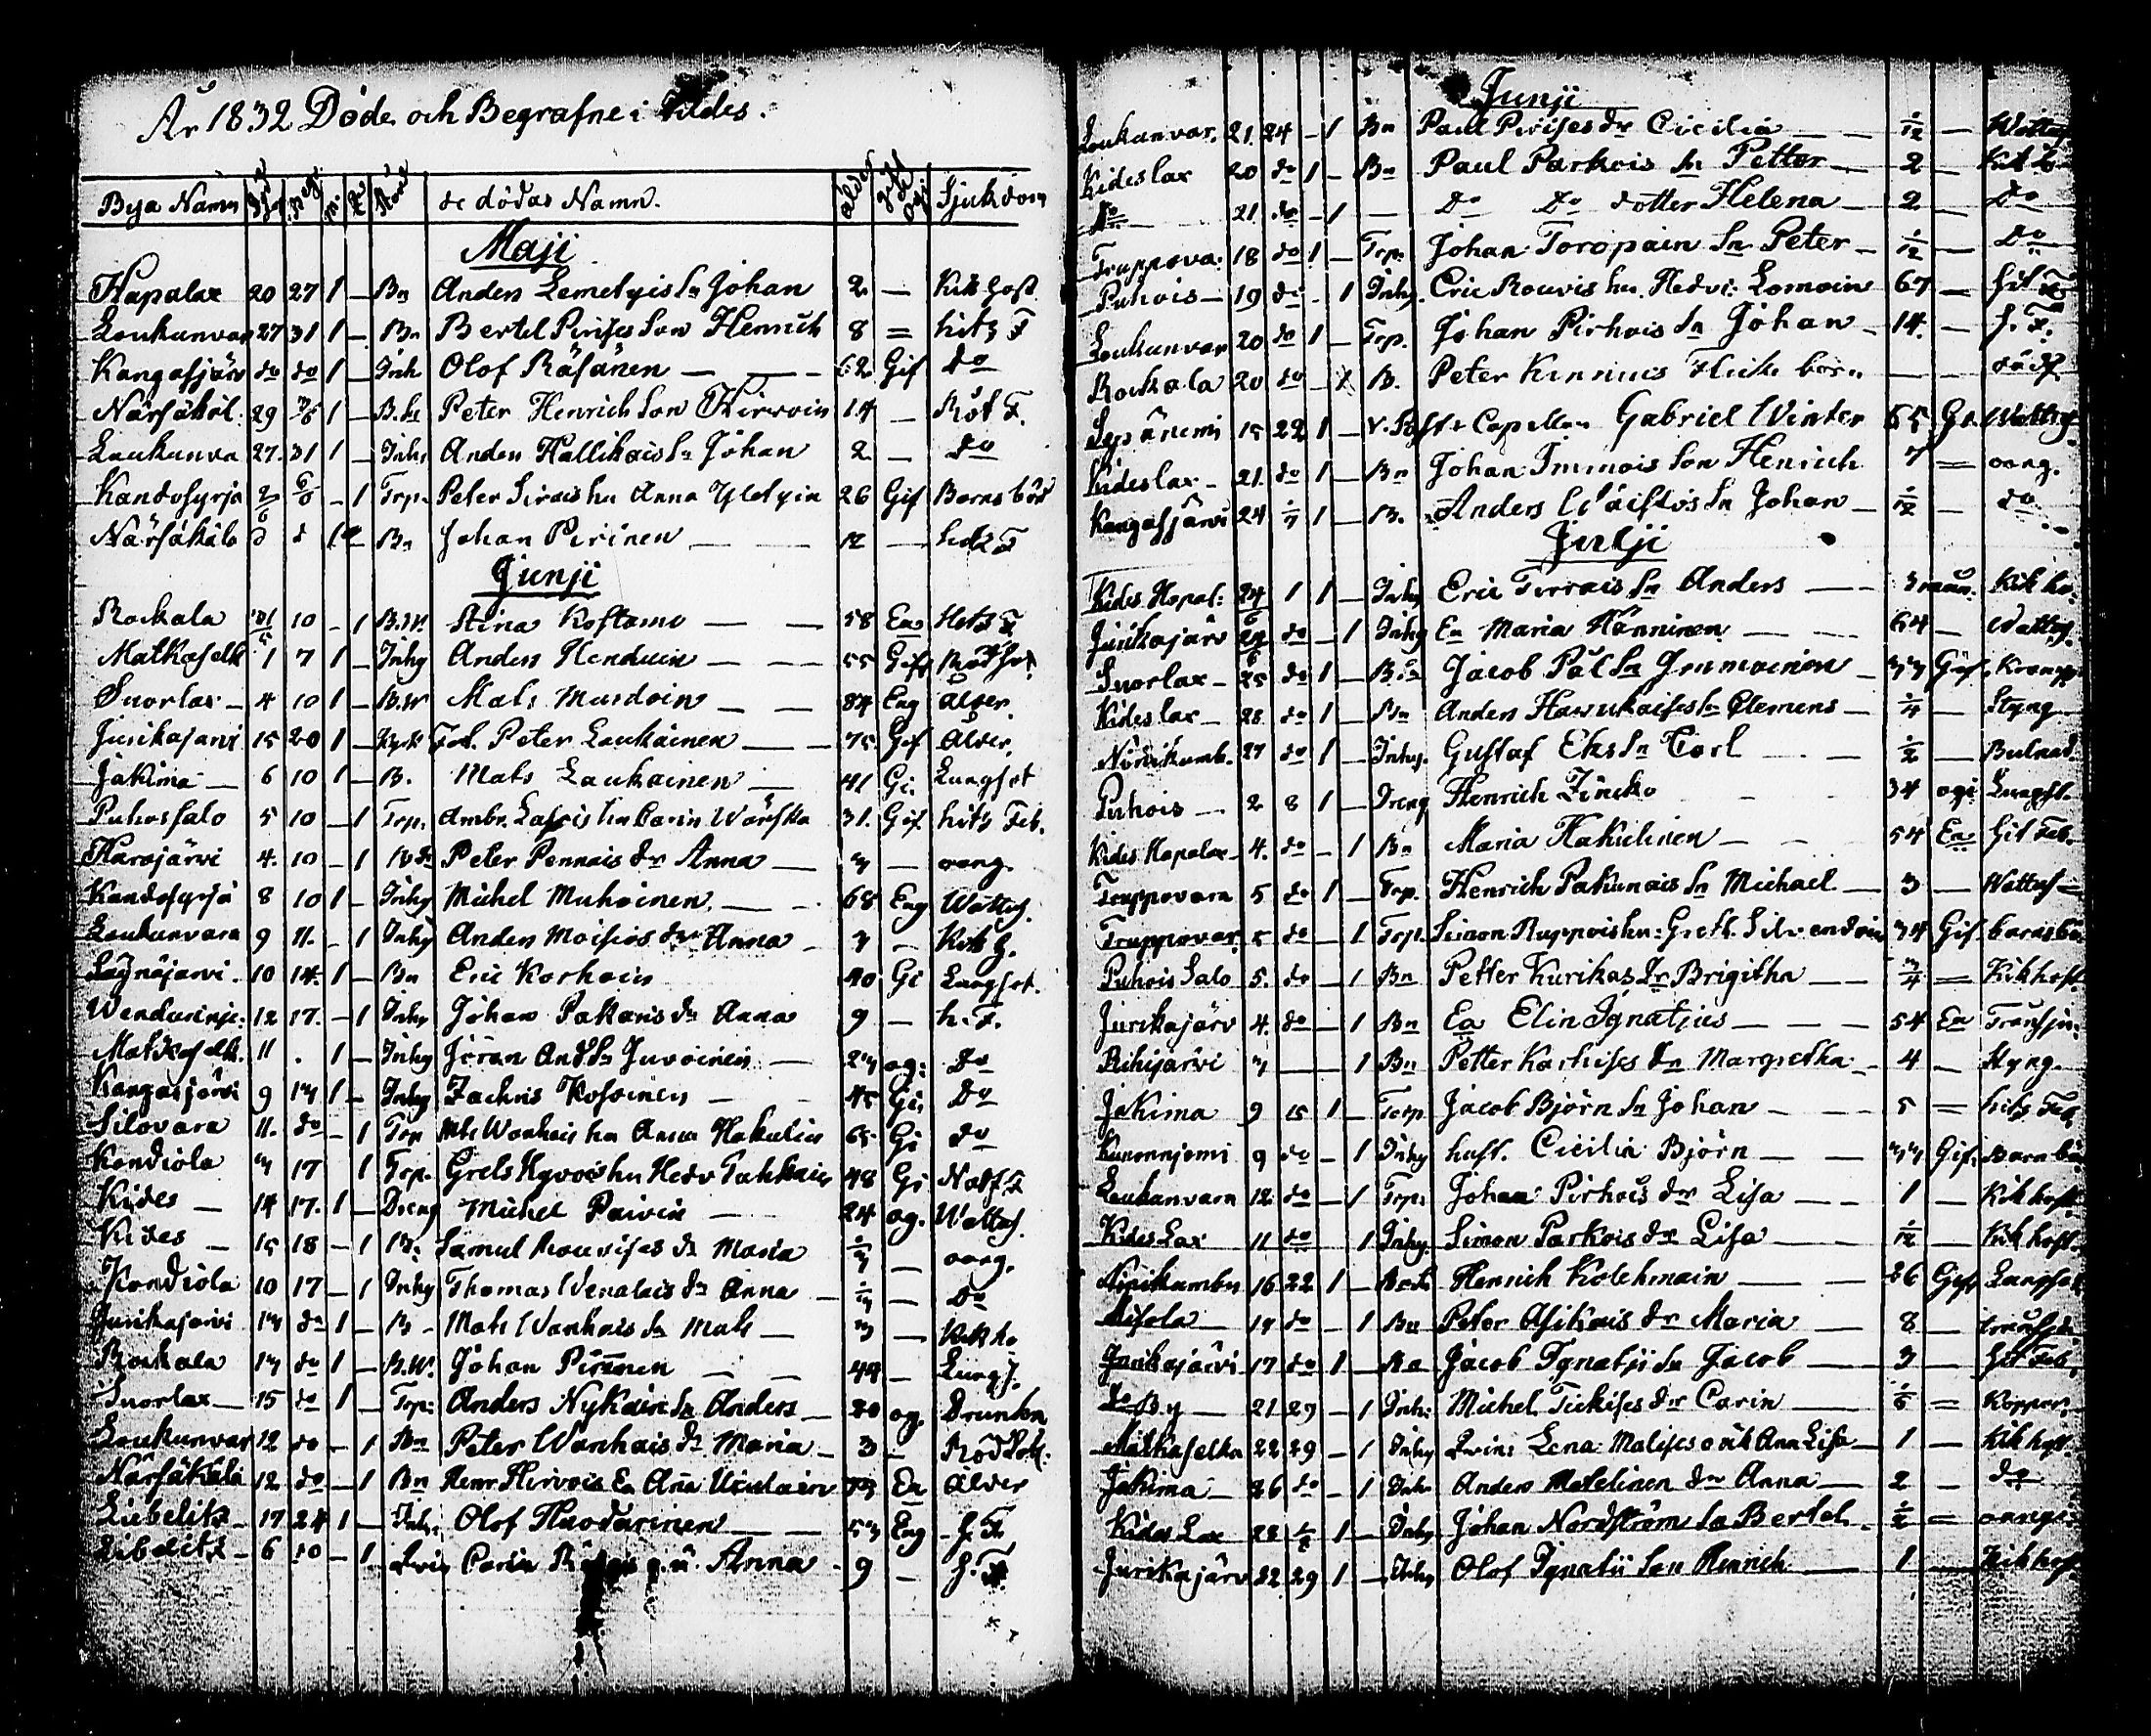 År 1832 Döde och Begrafne i Kides.
Bya Namn m. de dödas Namn. ålder Sjukdom
Maji
Hapalax 20 27 1 — Bn Anders Lemetyis Sn Johan 2 — Kik host
Loukunvar 27 31 1 — Bn Bertel Pirises Son Henrich 8 = hits F
Kangasjärv do do 1 — Inh Olof Räsänen — — 62 Gif do
Närsäköl. 29 1 — B. Sn Peter Henrich Son Hirwoin 14 — Röt F.
Loukunva 27. 31 1 — Inhs Anders Hallikais Sn Johan 2 — do
Kandosyrjä — 1 Trp. Peter Sirais hu Anna Yletyin 26 Gif Barns börd
Närsäkälä Bn Johan Pirinen — — 12 —
Junji
Rockala 10 — 1 B.W. Stina Kostamo — — 58 Ea Hets F
Matkaselk 1 7 1 — Inhy Anders Henduin — 55 Gift
Suorlax — 4 10 1 — B.W Mats Mustoin — — 84 Eng ålder.
Jurikajarvi 15 20 1 — Peter Laukainen — — 75. Gif Ålder.
Jakima — 6 10 1 — B. Mats Laukainen — 41 Gi. Lungsot
Puhossalo 5 10 — 1 Trp. Ambr. hu Carin Wärska 31. Gif. hits Feb.
Harajärvi 4. 10 — 1 Peter Pennais dr Anna — — oang.
Kandosyrjä 8 10 1 — Inhy Michel Muhoinen. — 68 Eng Wattus.
Loukunvara 9 11. — 1 Inhy Anders Moisios dr Anna — — Kik h.
10 14. 1 — Bn Eric Korhoin 40 Gi Lungsot.
12 17. — 1 Inhy Johan Pakaris dr Anna 9 — h. F.
Matkaselk. 11 . 1 — Inhy Jöran And. Sn Juvoinen — og: Do
Kangasjärvi 9 17 1 — Inhy Zachris Kosoinen — 45 Gi, Do
Silovara 11. do — 1 Trp Mts Wanhais hu Anna Hakulin 65 Gi do
Kondiola 17 1 Trp. Grels hu Hedv Tahkain 48 Gi
Kides — 14 17. 1 — Dreng Michel Paivin — 24 og. Wattus.
Kides — 15 18 — 1 B. Samul Rouvises dr Maria — oang.
Kondiola 10 17 — 1 Inhy Thomas Venalais dr Anna — — Do
Jurikajarvi 17 do 1 — B — Mats Wanhais Sn Mats — 3 — Kik ho
Rockala 17 do 1 — B.W. Johan Pirinen — — 44 — Lungs.
Suorlax — 15 do 1 Trp: Anders Nykain Sn Anders — 20 og. Drunkn
Loukunvar 12 do — 1 Bn Peter Wanhais dr Maria — 3 — Röd Sot.
Närsäkälä 12 do — 1 Bn Henr Hirvois Ea Ana Ea ålder
Liebelits — 17 24 1 — Inh. Olof Havdarinen — — 53 Eng — h. F
Libelits — 6 10 — 1 Carin Anna — 9 — h. F.
Junji
Loukunvar. 21. 24 — 1 Bn Paul Pirises dr Cicilia — — 1/12 — Wattus
Kideslax 20 do 1 — Bn Paul Parkois Sn Petter — 2 — Kik ho
Do — 21. do — 1 — Do Do dotter Helena — 2 — Do
Truppova: 18 do 1 — Trp. Johan Toropain Sn Peter — 1/12 — Do
Puhois — 19 do — 1 Inhy. Eric Rouvis hu. Hedvi: Lomoin 67 — hit F
Loukunvar 20 do 1 — Trp. Johan Pirhois Sn Johan — 14. — h. F.
Rockala 20 do — B. Peter Kinnuis Flicke barn — — död f.
15 22 1 — Capellan Gabriel Winter 65 Gt. Wattus
Kideslax — 21. do 1 — Bn Johan Immois Son Henrich 7 — oang.
Kangasjärvi 24 1/7 1 — B. Anders Wäistös Sn Johan — 1/12 — do
Julji
Kides Hapal: 24 1 1 — Inhy Eric Turrais Sn Anders — 3 mån. Kik ho.
Jurikajärv do — 1 Inhy Ea Maria Hänninen — — 64 — Wattus.
Suorlax — 25 do 1 — Jacob Pål Sn Immoinen — Gif.
Kideslax — 28 do 1 — Bn Anders Havukaises Sn Clemens — 1/4 — Styng
27 do 1 — Inhys. Gustaf Eks Sn Carl — 1/2 —
Puhois — 2 8 1 — Dreng Henrich — 34 ogi Lungst.
Kides Hapalax — 4. do — 1 Bn Maria Hakulinen — 54 Ea hit Feb.
Truppovara 5 do 1 — Trp. Henrich Pakunais Sn Michael — 3 — Wattus —
Truppovar. 5 do — 1 Trp. Simon Ruppois hu: Greth. Silvendoin 34 Gif. barns bö
Puhois Salo 5. do — 1 Bn Petter Kurikas Dr Brigitha — 3/4 — Kikhost.
Jurikajärv 4. do — 1 Bn Ea Elin Ignatjus — — 54 Ea
Riihijärvi — 1 Bn Petter Karhises dr Margretha — 4 — Styng.
Jakima 9 15 1 — Torp Jacob Björn Sn Johan — — 5 — hits Feb
9 do — 1 Inhy hust. Cicilia Björn — — Gif. Barn bö
Loukunvara 12. do — 1 Trp. Johan Pirhois dr Lisa — — 1 — Kik host
Kides Lax 11 do 1 Inhy. Simon Parkois dr Lisa — 1/12 — Kik host.
16 22 1 — Henrich Kolehmain — — 26 Gift Lungsot
do — 1 Bn Peter Asikais dr Maria — 8 —
Jurikajärvi 17 do 1 — Jacob Ignatji Sn Jacob — 3 — hit Feb.
Do By — 21 29 — 1 Inh: Michel Tiekises dr Carin — — Koppor.
Matkaselka 22 29 — 1 Inhy Lena Malises och Ann Lisa — 1 — Kik host
Jakima — 26 do — 1 Inh. Anders Matelinen dr Anna — 2 — do
Kides Lax 28 1 — Inhy Johan Nordström Sn Bertel — 1/2 — oang.
Jurikajärv 22 29 1 — Inhy Olof Ignatii Son Henrich — 1 — Kik host